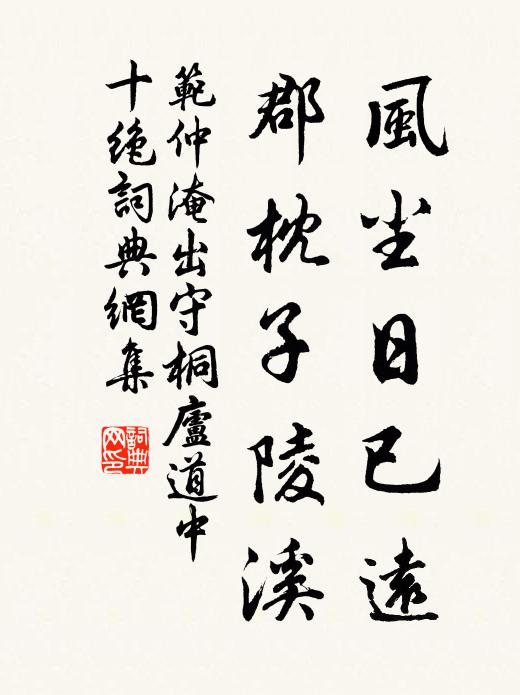 風尘日已遠
郡枕子陵溪
範仲淹出守桐廬道中
十絶詞典網集
詞典
网印